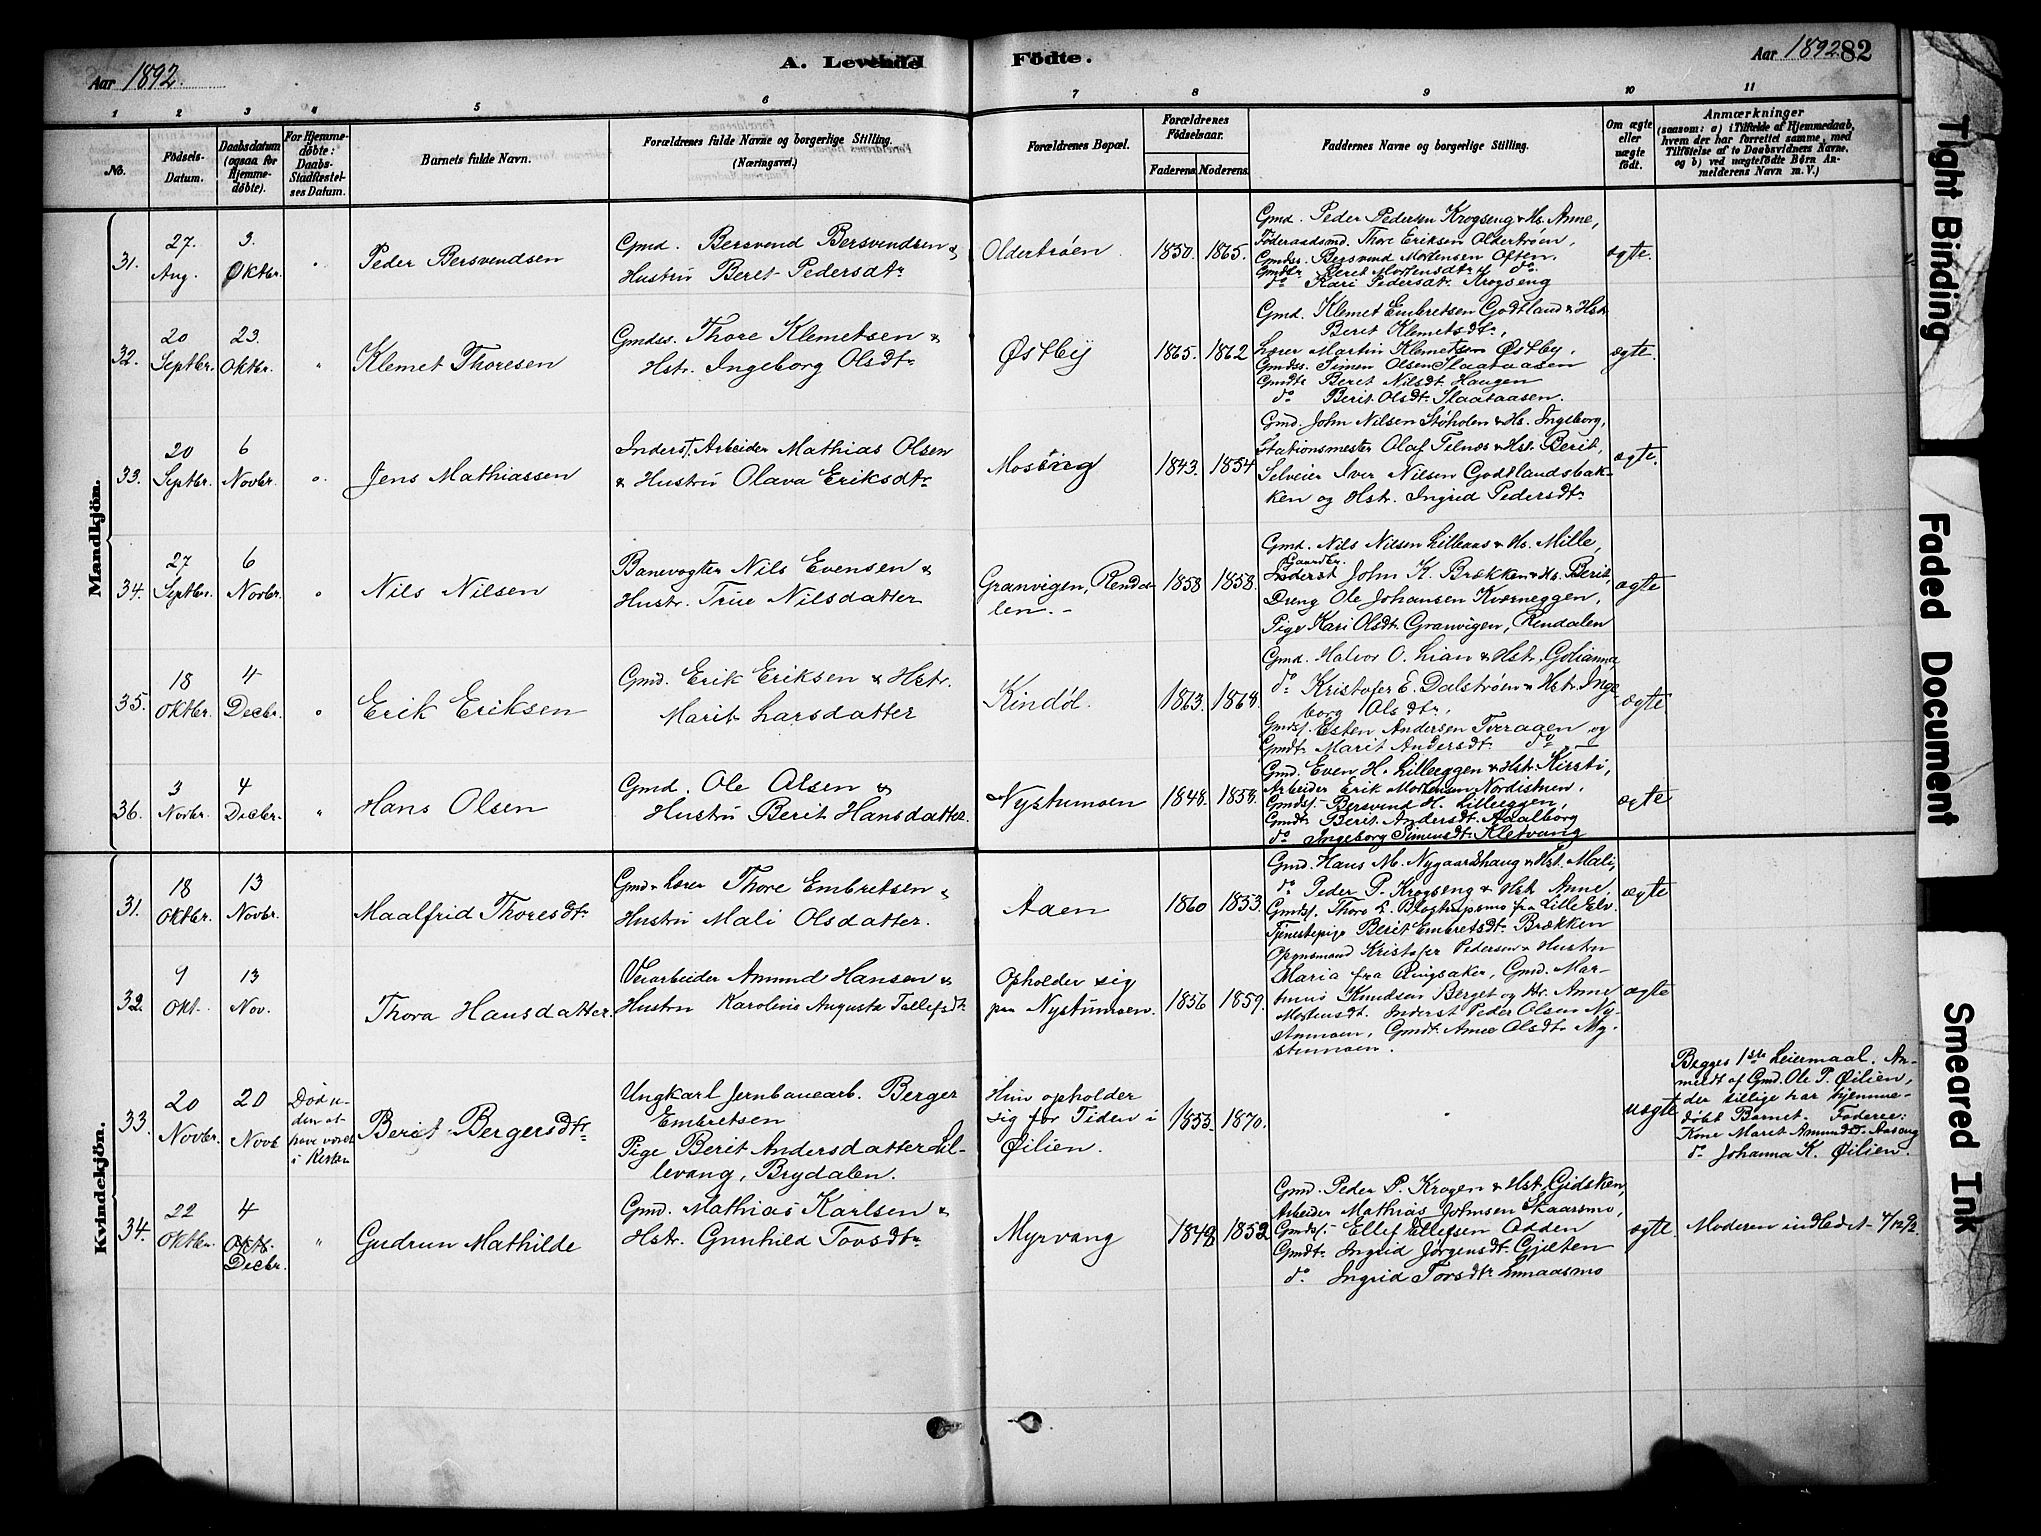 Aar 1892.
A. Levende Födte.
Aar 1892.
82
1 2 3 4 5 6 7 8 9 10 11
No.
Födsels-Datum.
Daabsdatum (ogsaa for Hjemme-döbte).
For Hjemme-döbte: Daabs-Stadfæstel-ses Datum.
Barnets fulde Navn.
Forældrenes fulde Navne og borgerlige Stilling.
(Næringsvei.)
Forældrenes Bopæl.
Forældrenes Födselsaar.
Faderens. Moderens.
Faddernes Navne og borgerlige Stilling.
Om ægte eller uægte födt.
Anmærkninger
(saasom: a) i Tilfælde af Hjemmedaab,
hvem der har forrettet samme, med
Tilföielse af to Daabsvidners Navne,
og b) ved uægtefödte Börn An-
melderens Navn m. V.)
Mandkjön.
31. 27. Aug. 3. Oktbr. "
Peder Bersvendsen
Gmd. Bersvend Bersvendsen &
Hustru Beret Pedersdtr
Oldertrøen
1850. 1865.
Gmd. Peder Pedersen Krogseng & Hs. Anne,
Föderaadsmd. Thore Eriksen Oldertrøen,
Gmdss. Bersvend Mortensen Often,
Gmdtr Beret Mortensdtr do.
do Kari Pedersdtr Krogseng
ægte.
32. 20 Septbr. 23. Oktbr. "
Klemet Thoresen
Gmdss. Thore Klemetsen &
Hstr. Ingeborg Olsdtr
Østby
1865. 1862
Gmd. Klemet Embretsen Godtland & Hstr
Berit Klemetsdtr,
Lærer Martin Klemetsen Østby,
Gmdss. Simen Olsen Slaataasen
Gmdtr Beret Nilsdtr Haugen
do Berit Olsdtr Slaataasen.
ægte.
33. 20 Septbr. 6 Novbr. "
Jens Mathiassen
Inderst, Arbeider Mathias Olsen
& Hustru Olava Eriksdtr
Moseng
1843. 1854
Gmd. John Nilsen Støholen & Hs. Ingeborg,
Stationsmester Olaf Telnæs & Hst. Berit,
Selveier Iver Nilsen Godtlandsbak-
ken og Hstr. Ingrid Pedersdtr
ægte.
34. 27 Septbr. 6 Novbr. "
Nils Nilsen
Banevogter Nils Evensen &
Hustr. Trine Nilsdatter
Granvigen, Renda-
len.-
1858 1858.
Gmd. Nils Nilsen Lilleaas & Hs. Mille,
Gaardbr.
Inderst John K. Brækken & Hs. Berit,
Dreng Ole Johansen Kværneggen,
Pige Kari Olsdt. Granvigen, Rendalen
ægte
35. 18 Oktbr. 4 Decbr. "
Erik Eriksen
Gmd. Erik Eriksen & Hstr.
Marit Larsdatter
Kindøl.
1863. 1868.
Gmd. Halvor O. Lian & Hstr. Golianna,
do Kristofer E. Dalstrøm & Hstr. Inge-
borg Olsdtr,
Gmdsf. Esten Andersen Tveraaen og
Gmdt. Marit Andersdt. do
ægte
36. 3 Novbr. 4 Decbr. "
Hans Olsen
Gmd. Ole Olsen &
Hustru Berit Hansdatter.
Nystumoen
1848. 1858.
Gmd. Even H. Lilleeggen & Hstr. Kirsti,
Arbeider Erik Mortensen Nordistuen,
Gmdsf. Bersvend H. Lilleeggen,
Gmdt. Berit Andersdt. Aaalborg
do Ingeborg Simensdt. Kletvang
ægte
Kvindekjön.
31. 18 Oktbr. 13 Novbr.
Maalfrid Thoresdtr
Gmd & Lærer Thore Embretsen &
Hustru Mali Olsdatter.
Aaen
1860 1853.
Gmd. Hans M. Nygaardshaug & Hst. Mali,
do Peder P. Krogseng & Hst. Anne.
Gmdsf. Thore L. fra Lille Elv.
Tjenestepige Berit Embretsdt. Brækken
ægte
32. 9 Okt. 13 Nov.
Thora Hansdatter.
Veiarbeider Amund Hansen &
Hustru Karoline Augusta Tollefsdt.
Opholder sig
paa Nystumoen.
1856 1859.
Opsynsmand Kristofer Pedersen & Hustru
Maria fra Ringsaker, Gmd. Mar-
tinus Knudsen Berget og Hr. Anne
Mortensdt. Inderst Peder Olsen Ny-
stumoen, Gmdt. Anne Olsdt. Ny-
stumoen.
ægte
33. 20 Novbr. 20 Novb
Död u-
den at
have været
i Kirken
Berit Bergersdtr
Ungkarl Jernbanearb. Berger
Embretsen
Pige Berit Andersdatter Lil-
levang, Brydalen.
Hun opholder
sig for Tiden i
Øilien.
1853. 1870.
"
uægte
Begges 1ste Leiermaal. An-
meldt af Gmd. Ole P. Øilien,
der tillige har hjemme-
döbt Barnet. Faddere:
Kone Marit Amundsd. Aaseng
do Johanna K. Øilien.
34. 22 Oktbr. 4 Oktb. Decbr. "
Gudrun Mathilde
Gmd. Mathias Karlsen &
Hstr. Gunhild Torsdtr
Myrvang
1848 1852
Gmd. Peder P. Krogen & Hst. Gidsken,
Arbeider Mathias Johnsen Skaarsmo,
Gmdsf. Ellef Ellefsen Odden
Gmdtr Ingrid Jörgensdt. Gjelten
do Ingrid Torsdtr Lunaasmo
ægte.
Moderen indledet 4/12 92.
Tight Binding
Faded Document
Smeared Ink